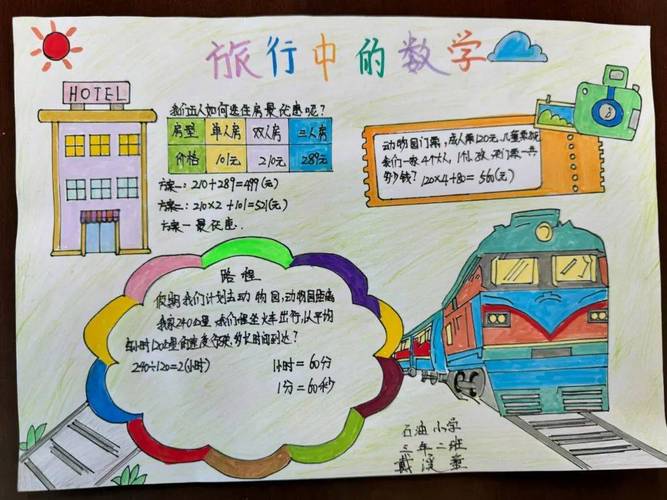 旅行中的数学
HOTEL
我们五人如何选住房最优惠呢?
房型 单人房 双人房 三人房
价格 101元 210元 289元
方案一: 210+289=499(元)
方案二: 210×2+101=521(元)
方案一最优惠.
动物园门票,成人票120元,儿童票80元
我们一家4个大人,1个小孩,买门票一共
多少钱? 120×4+80=560(元)
路程
假期我们计划去动物园,动物园距离
我家240公里,我们程坐火车出行,以平均
每小时120公里的速度行驶,多长时间到达?
240÷120=2(小时)
1小时=60分
1分=60秒
石油小学
三年二班
戴